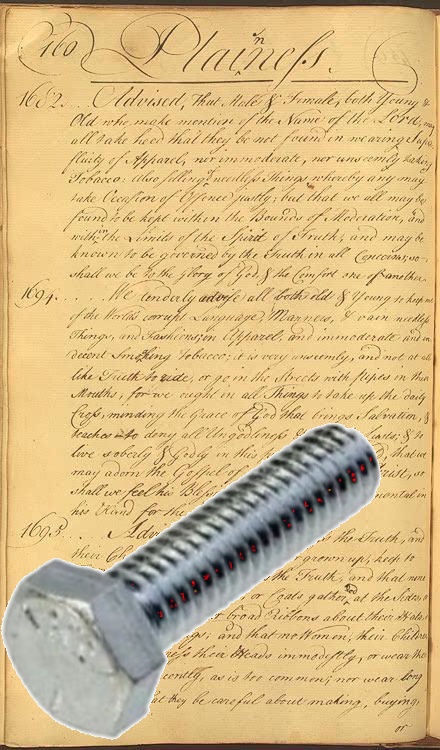 160 Plainness.
1682... Advised, That Male & Female, both Young &
Old who make mention of the Name of the Lord, may
all take heed that they be not found in wearing Supe
fluity of Apparel, nor immoderate, nor unseemly taking
Tobacco: Also selling needless Things whereby any may
take Occasion of Offence justly; but that we all may be
found to be kept within the Bounds of Moderation, and
within the Limits of the Spirit of Truth; and may be
known to be governed by the Truth in all Concerns, so
shall we be to the Glory of God, & the Comfort one of another.
1694..... We tenderly advise all both old & Young to keep out
of the World's corrupt Language, Manners, & vain needless
Things, and Fashions in Apparel, and immoderate and in
decent Smoking Tobacco; it is very unseemly, and not at all
like Truth to ride, or go in the Streets with pipes in their
Mouths, for we ought in all Things to take up the daily
Cross, minding the Grace of God that brings Salvation, &
teaches to deny all Ungodliness Lusts; & to
live soberly & Godly in this that we
may adorn the Gospel of Christ, so
shall we feel his Bless mental in
his Hand for the
1695. Advi the Truth, and
their Ch grown up, keep to
the Truth, and that none
or Coats gather, at the Sides, or
or broad Ribbons about their Hats
gs; and that no Women, their Children
ress their Heads immodestly, or wear their
cently, as is too common; nor wear long
at they be careful about making, buying,
or